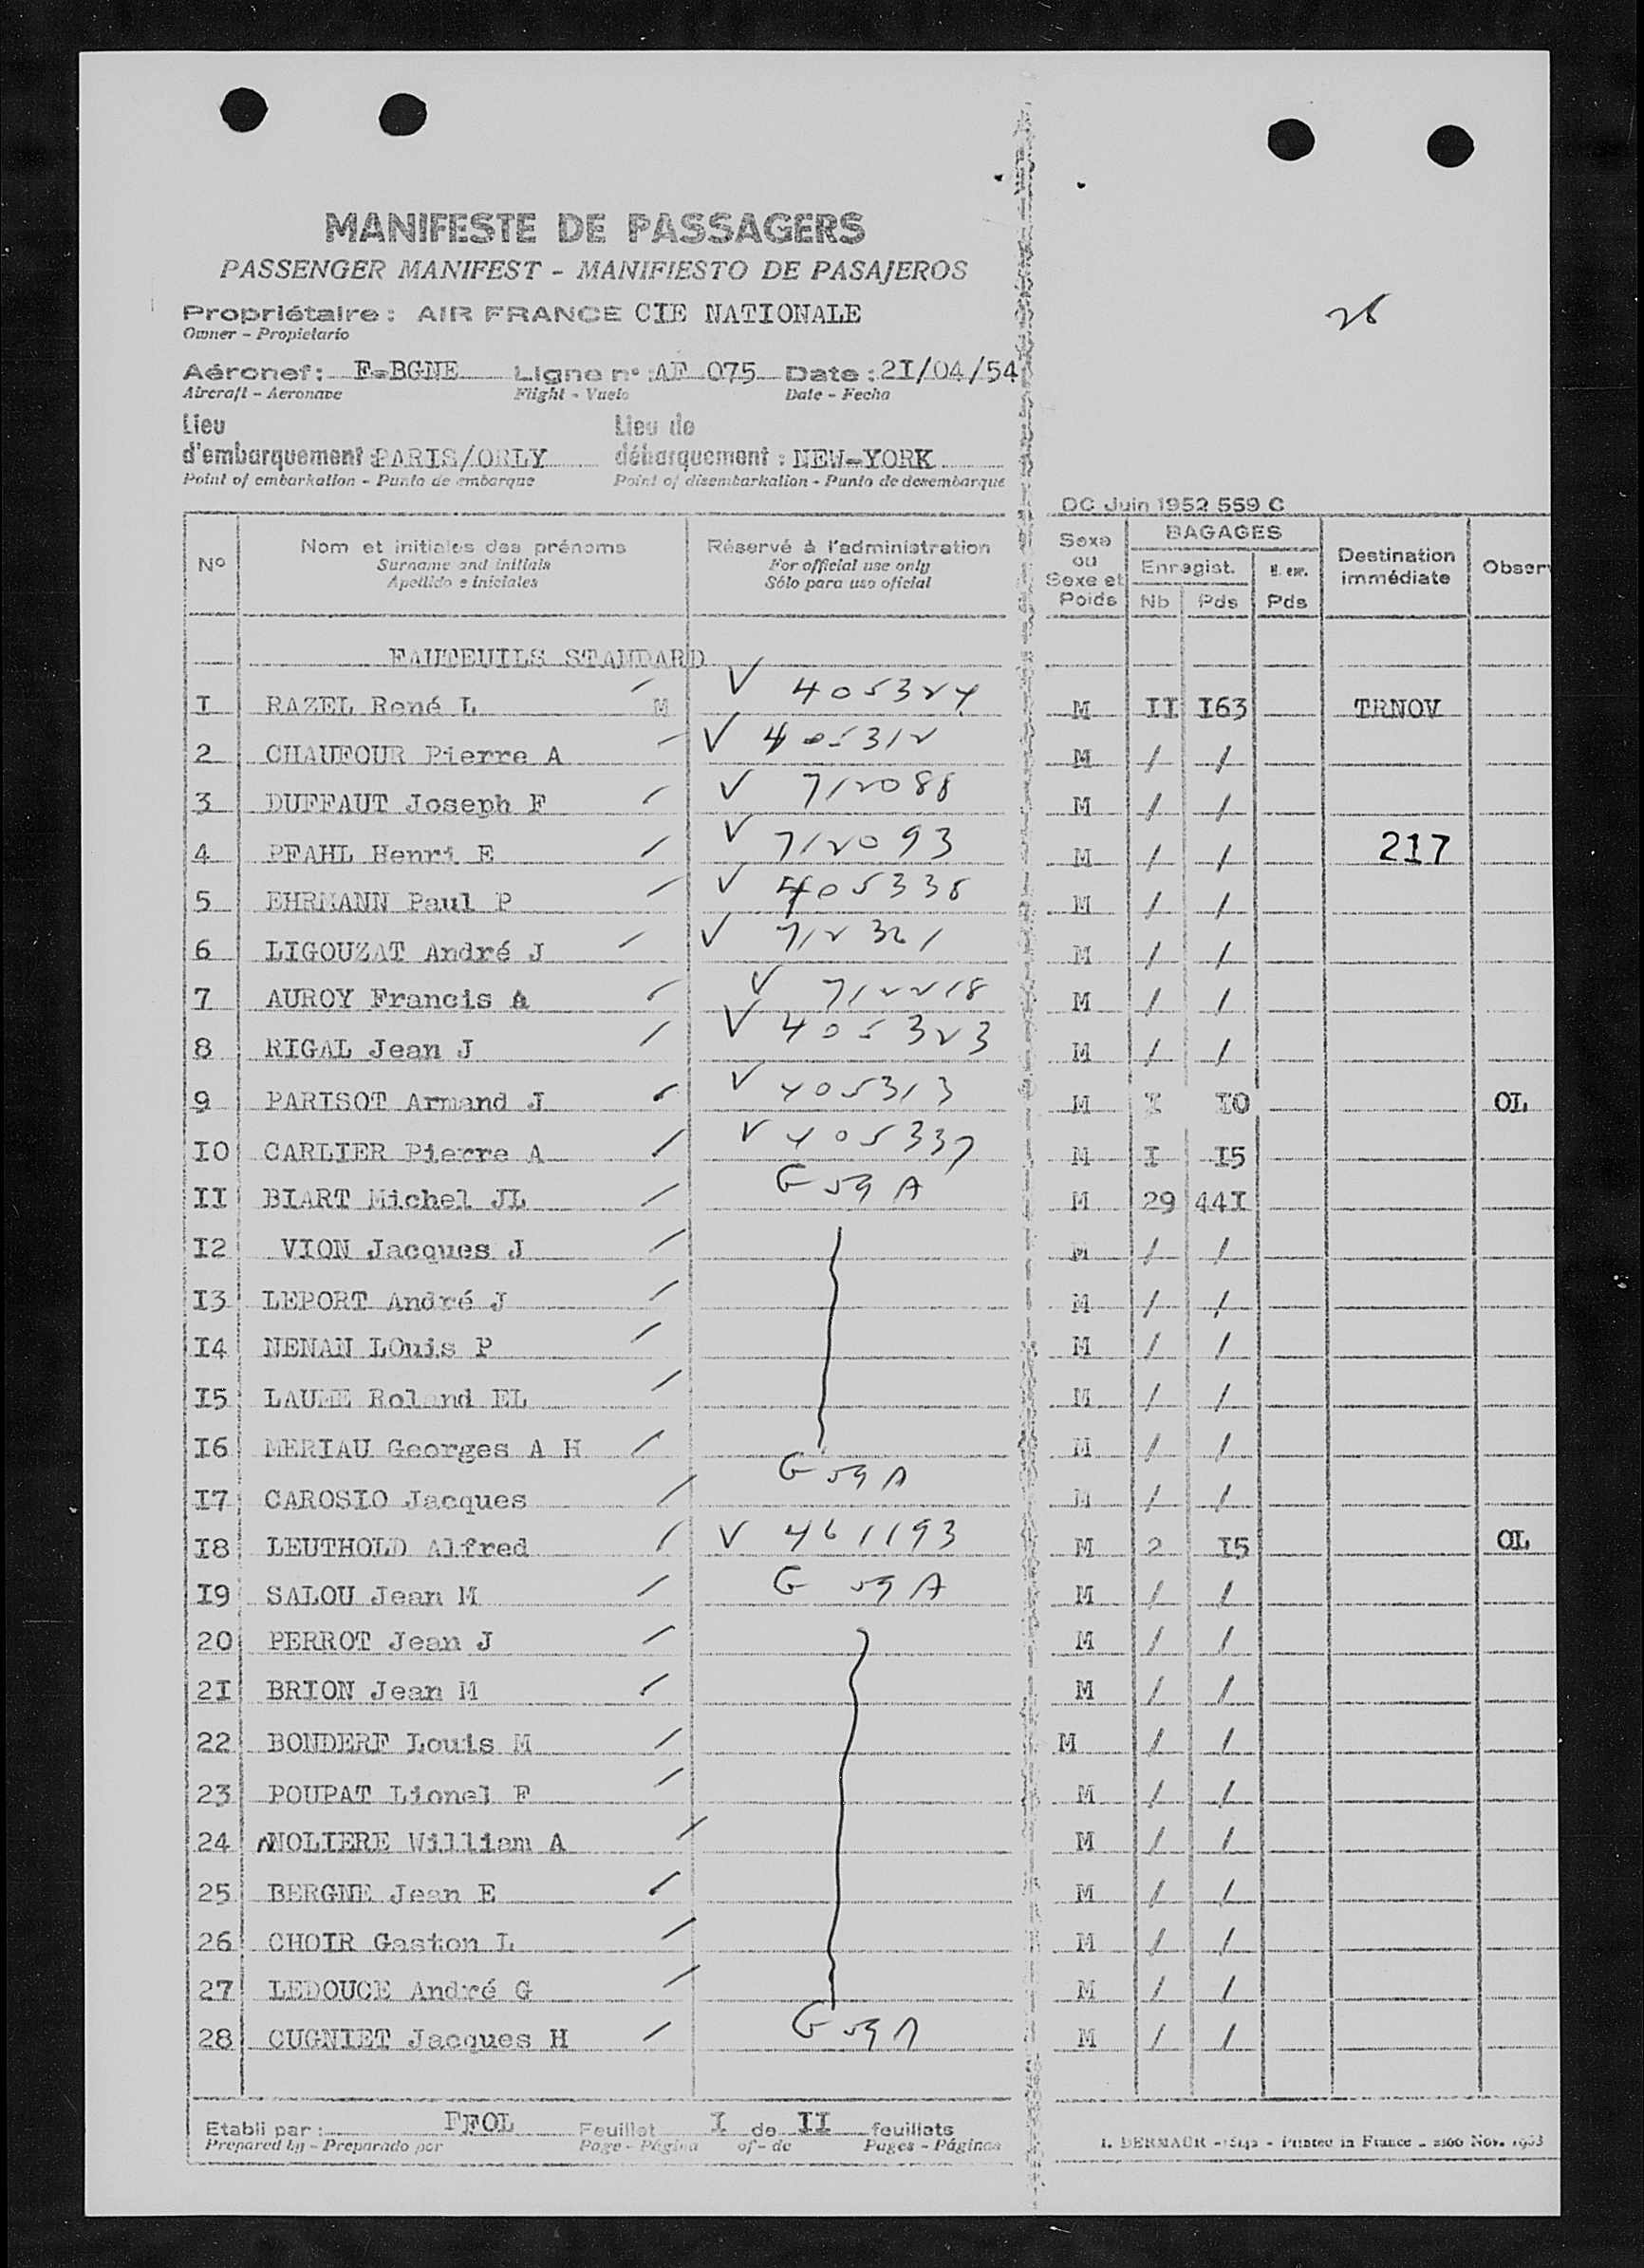 MANIFESTE DE PASSAGERS
PASSENGER MANIFEST - MANIFIESTO DE PASAJEROS
Propriétaire : AIR FRANCE CIE NATIONALE
Owner - Propietario
26
Aéronef : F-BGNE Ligne n° : AF 075 Date : 2I/04/54
Aircraft - Aeronave Flight - Vuelo Date - Fecha
Lieu d'embarquement : PARIS/ORLY Lieu de débarquement : NEW-YORK
Point of embarkation - Punto de embarque Point of disembarkation - Punto de desembarque
DC Juin 1952 559 C
N° Nom et initiales des prénoms Réservé à l'administration Sexe ou Sexe et Poids BAGAGES Destination immédiate Obser
Surname and initials For official use only Enregist. N. enr.
Apellido e iniciales Sólo para uso oficial Nb Pds Pds
FAUTEUILS STANDARD
I RAZEL René L M V 405324 M II I63 TRNOV
2 CHAUFOUR Pierre A V 405312 M / /
3 DUFFAUT Joseph F V 712088 M / /
4 PFAHL Henri E V 712093 M / / 217
5 EHRMANN Paul P V 405338 M / /
6 LIGOUZAT André J V 712321 M / /
7 AUROY Francis A V 712218 M / /
8 RIGAL Jean J V 405323 M / /
9 PARISOT Armand J V 405313 M I IO OL
IO CARLIER Pierre A V 405337 M I I5
II BIART Michel JL G 59 A M 29 44I
I2 VION Jacques J M / /
I3 LEPORT André J M / /
I4 NENAN LOuis P M / /
I5 LAUME Roland EL M / /
I6 MERIAU Georges A H M / /
G 59 A
I7 CAROSIO Jacques M / /
I8 LEUTHOLD Alfred V 461193 M 2 I5 OL
I9 SALOU Jean M G 59 A M / /
20 PERROT Jean J M / /
2I BRION Jean M M / /
22 BONDERF Louis M M / /
23 POUPAT Lionel F M / /
24 NOLIERE William A M / /
25 BERGNE Jean E M / /
26 CHOIR Gaston L M / /
27 LEDOUCE André G M / /
28 CUGNIET Jacques H G 59 A M / /
Etabli par : FFOL Feuillet I de II feuillets
Prepared by - Preparado por Page - Página of - de Pages - Páginas
Printed in France Nov. 1953